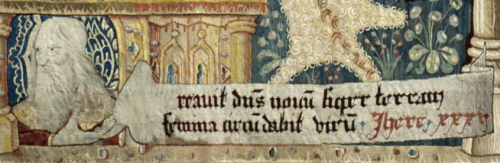 reavit dn̄s novū super terram
femina circūdabit virū. Jhere. xxxi